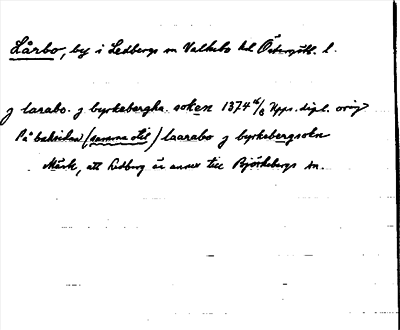 Lårbo, by i Ledbergs sn Valkebo hd Östergötl. l.
j larabo. j byrkebergha. soken 1374 4/6 Upps. dipl. orig
På baksidan (samma stil) laarabo j byrkebergsokn
Märk, att Ledberg är annex till Björkebergs sn.